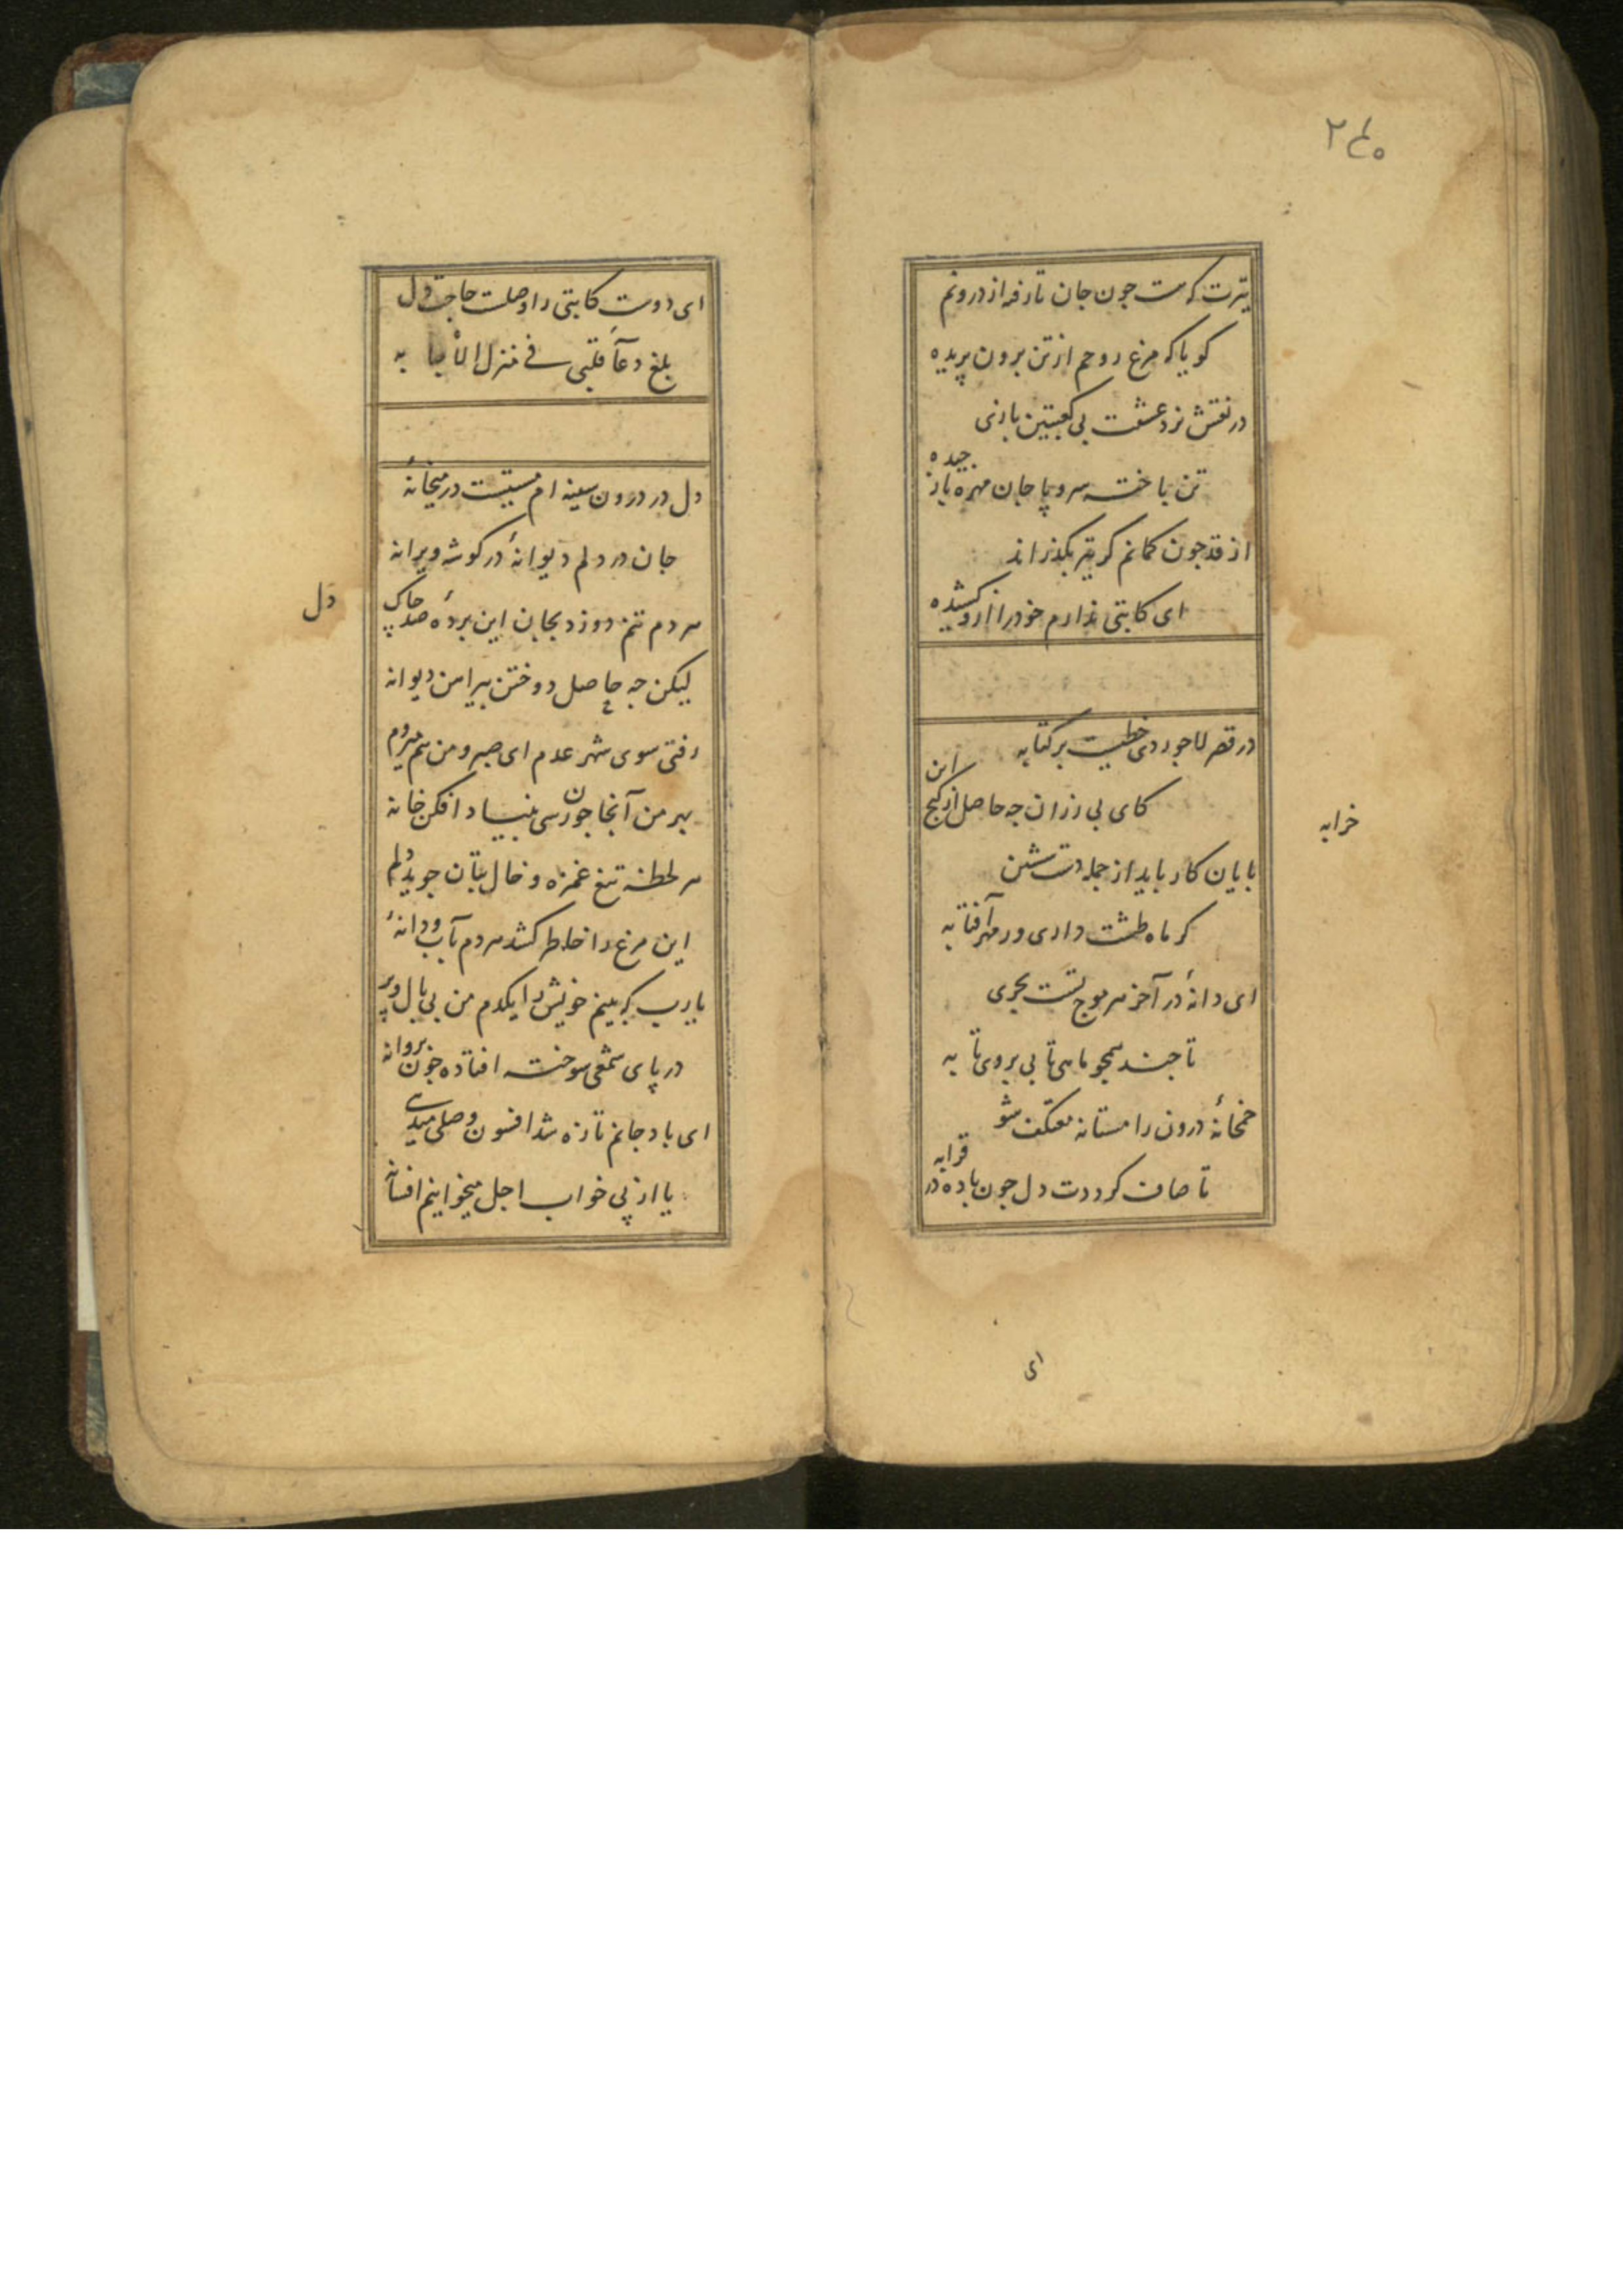 ۲۴۰
تیرت که هست چون جان تا رفته از درونم
کویا که مرغ روحم از تن برون پریده
در نقش نرد عشقت بی کعبتین بازی
تن باخته سر و پا جان مهره باز چیده
از قد چون کمانم کر تیر بکذراند
ای کاتبی ندارم خود را ازو کشیده
در قصر لاجوردی خطیست بر کتابه
کای بی زران چه حاصل از کنج این
خرابه
پایان کار باید از جمله دست شستن
کر ماه طشت داری ور مهر آفتابه
ای دانهٔ در آخز هر موج تست بحری
تا چند همچو ماهی تابی بروی تابه
خمخانهٔ درون را مستانه معتکف شو
تا صاف کرددت دل چون باده در قرابه
ای
ای دوست کاتبی را وصلست حاجت دل
بلغ دعآء قلبی فی منزل به
دل در درون سینه ام مستیست در میخانهٔ
جان در دلم دیوانهٔ در کوشه ویرانه
هر دم تنم دوزد بجان این پردهٔ صد چاک
دل
لیکن چه حاصل دوختن پیراهن دیوانه
رفتی سوی شهر عدم ای صبر و من هم میروم
بهر من آنجا چون رسی بنیاد افکن خانه
هر لحظه تیغ غمزه و خال بتان جوید دلم
این مرغ را خاطر کشد هر دم بآب و دانهٔ
یارب که بینم خویش را یکدم من بی بال و پر
در پای شمعی سوخته افتاده چون پروانه
ای باد جانم تازه شد افسون وصلی میدمی
یا از پی خواب اجل میخوانیم افسانه